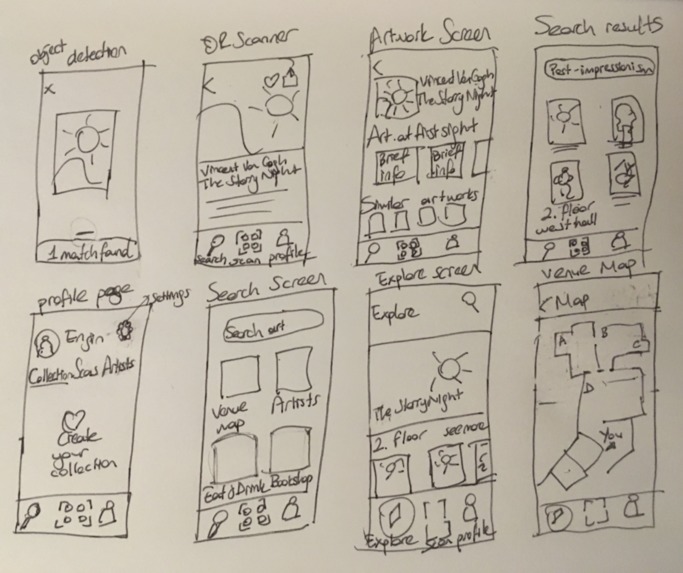 object detection
X
1 match found
QR Scanner
Vincent Van Gogh
The Story Night
Search scan profile
Artwork Screen
Vincent Van Gogh
The Story Night
Art at first sight
Brief info
Brief info
Similar artworks
Search results
Post-impressionism
2. floor
west hall
profile page
settings
Engin
Collection Scans Artists
Create
your
collection
Search Screen
Search art
Venue map
Artists
Eat & Drink Bookshop
Explore screen
Explore
The Story Night
2. floor see more
Explore scan profile
Venue Map
< Map
A B C
D
You